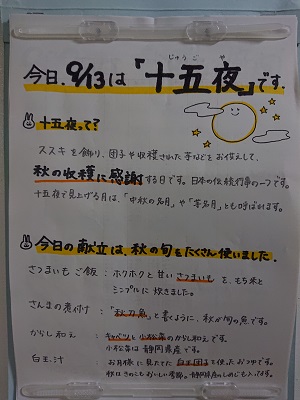 じゅうごや
今日、9/13は「十五夜」です.
十五夜って?
ススキを飾り、団子や収穫された芋などをお供えして、
秋の収穫に感謝する日です。日本の伝統行事の一つです。
十五夜で見上げる月は、「中秋の名月」や「芋名月」とも呼ばれます。
今日の献立は、秋の旬をたくさん使いました.
さつまいもご飯:ホクホクと甘いさつまいもを、もち米と
シンプルに炊きました。
さんまの煮付:「秋刀魚」と書くように、秋が旬の魚です。
からし和え:キャベツと小松菜のからし和えです。
小松菜は静岡県産です。
白玉汁:お月様に見たてた白玉団子を使ったおつゆです。
秋はきのこもおいしい季節。静岡県産のしめじも入ってます。